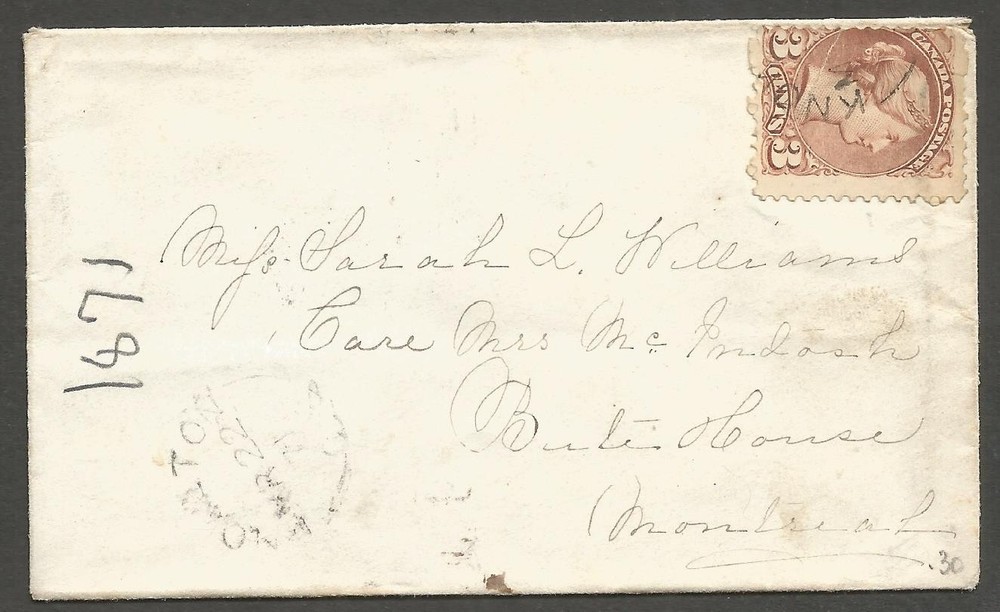 3 CANADA POSTAGE 3
Miss Sarah L. Williams
Care Mrs McIndosh
Bute House
Montreal
1871
MAR 22
.30